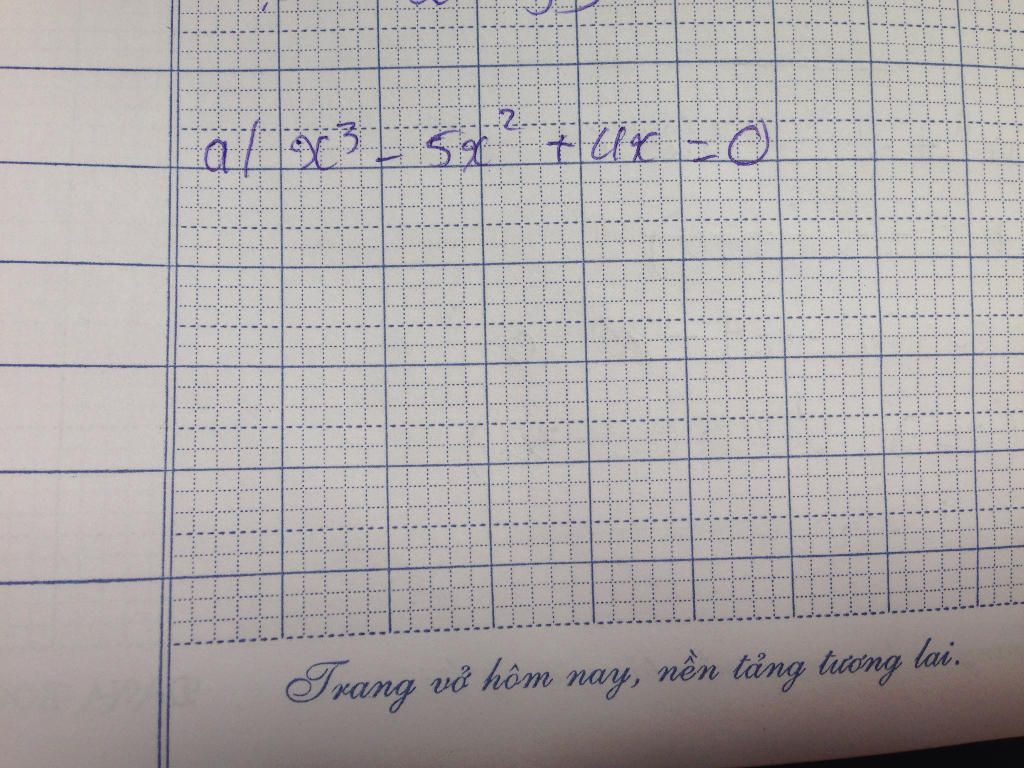 a/ x³ - 5x² + 4x = 0
Trang vở hôm nay, nền tảng tương lai.